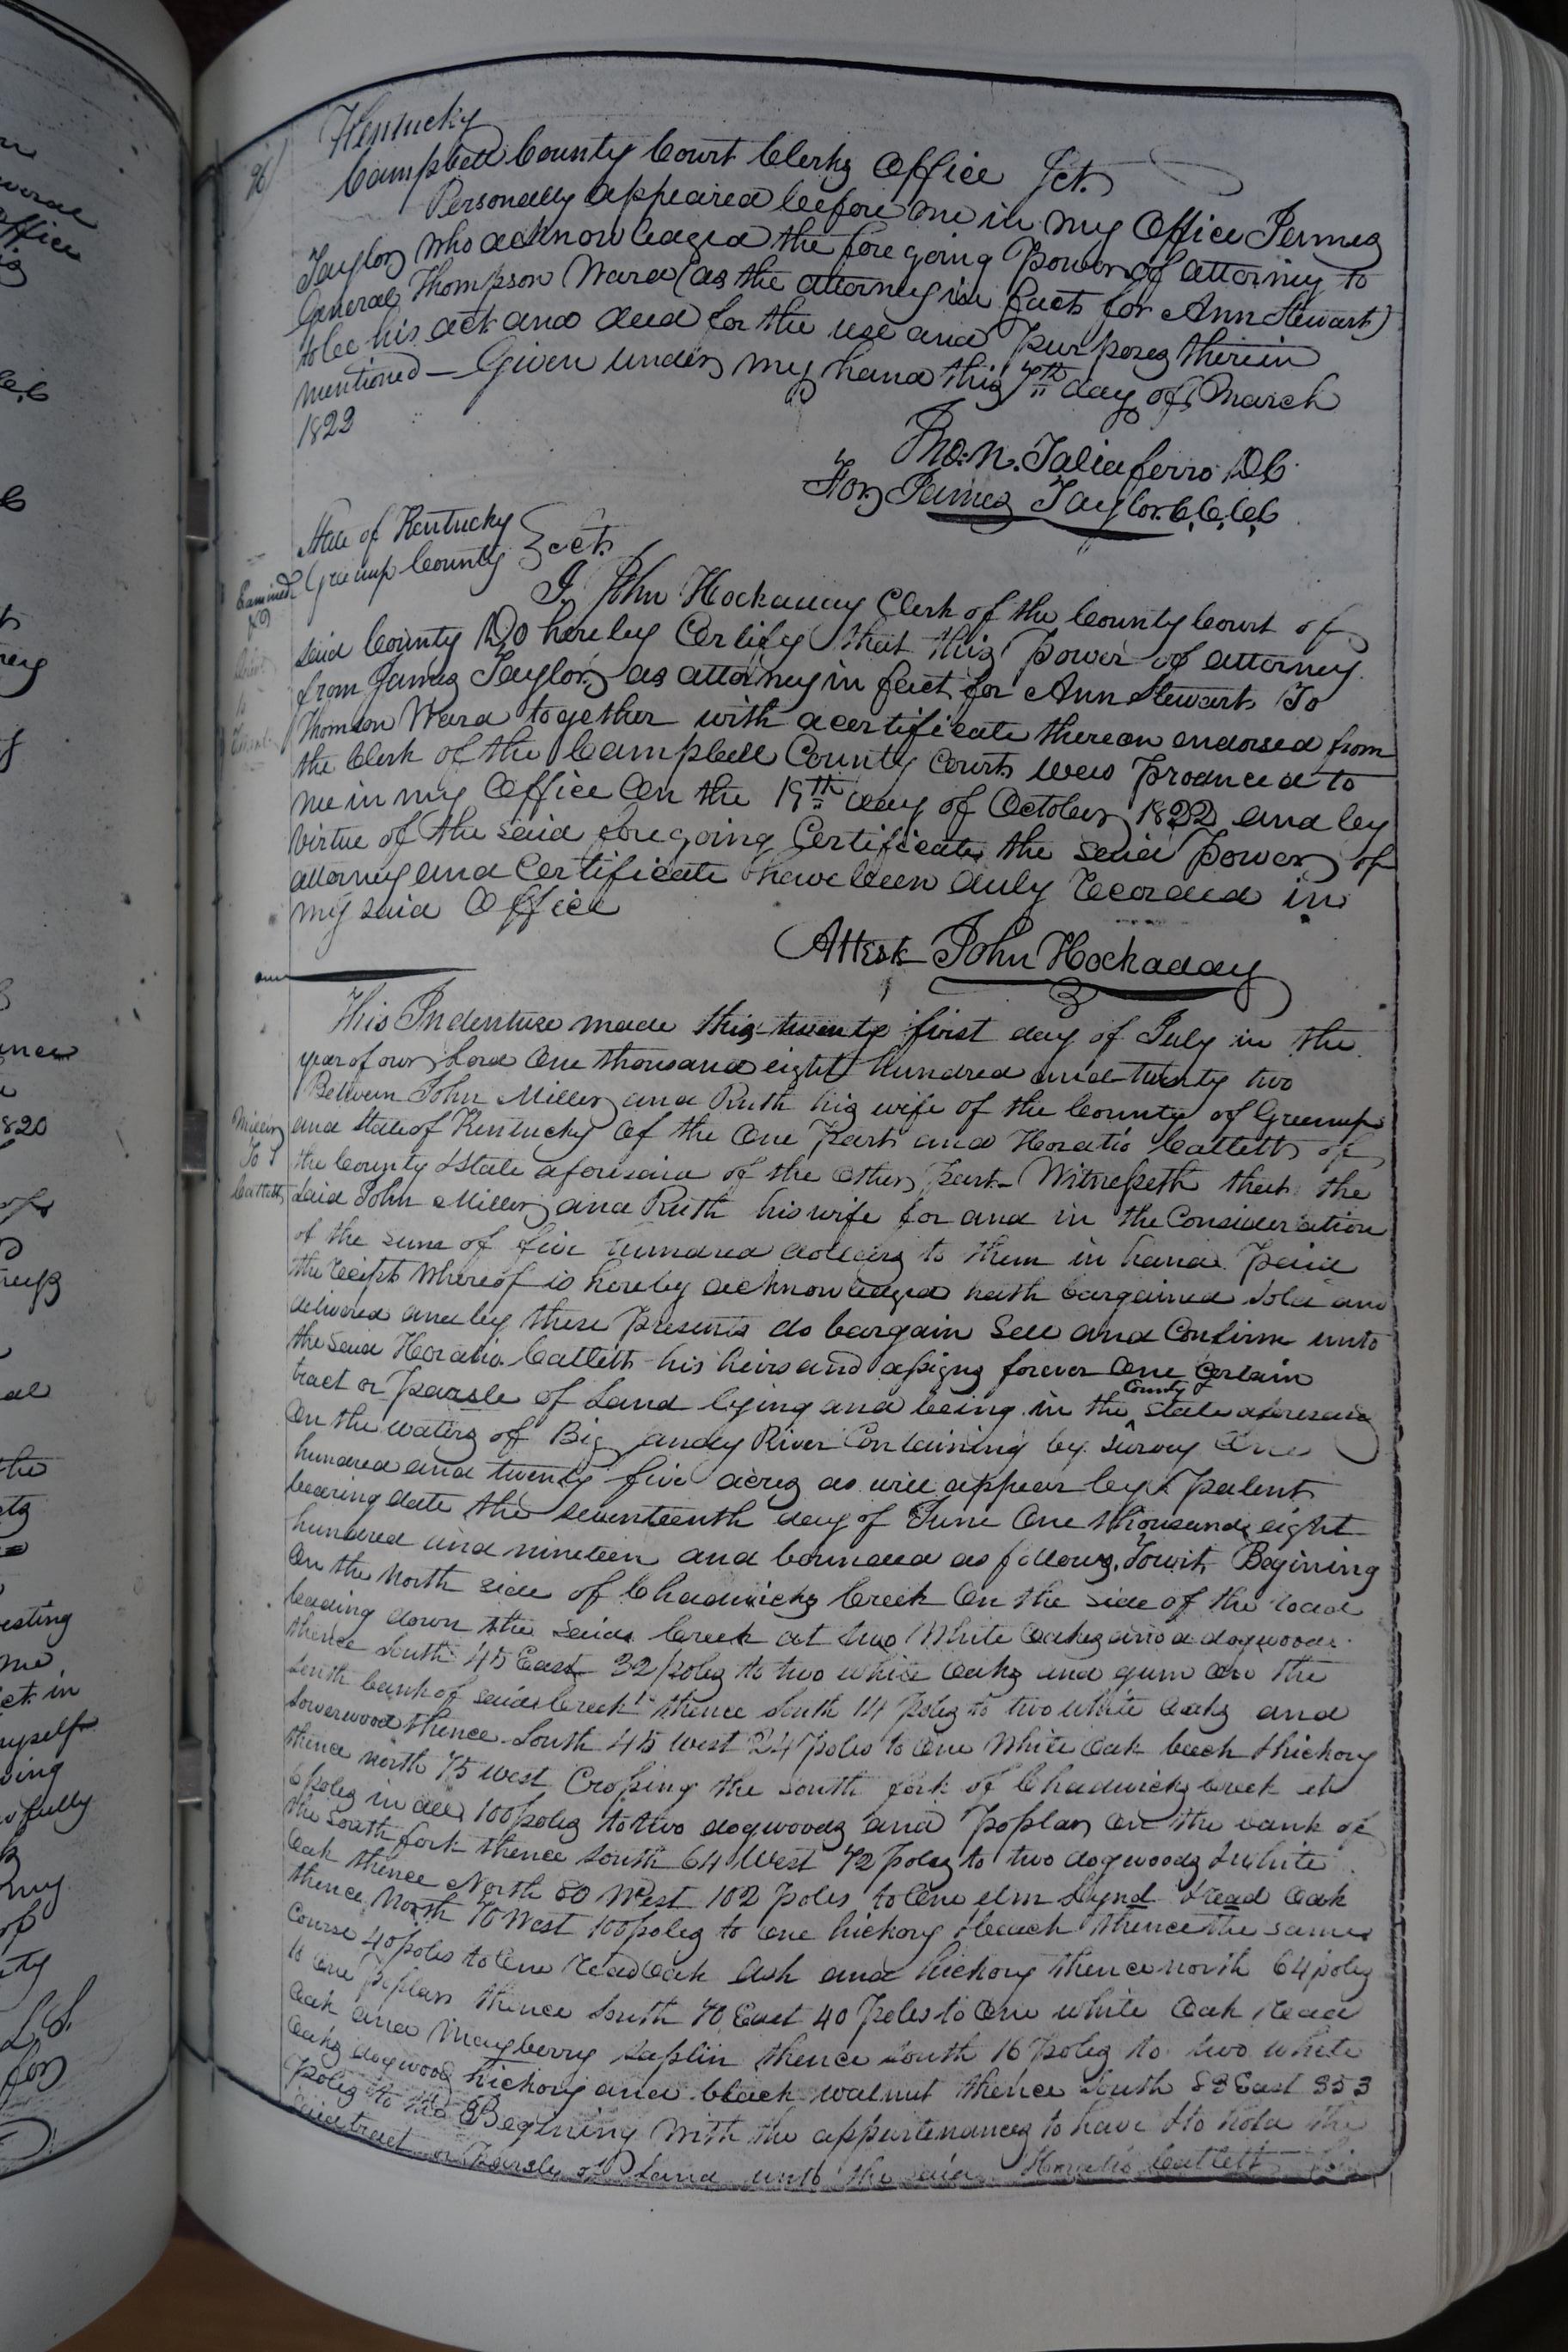 96
Kentucky
Campbell County Court Clerks Office Sct.
Personally appeared before me in my Office James
Taylor who acknowledged the foregoing Power of attorney to
General Thompson Ward (as the attorney in fact for Ann Stewart)
to be his act and deed for the use and purposes therein
mentioned — Given under my hand this 7th day of March
1822
Tho. N. Taliaferro D.C.
For James Taylor C.C.C.C.
State of Kentucky
Greenup County } Sct.
Examined
I John Hockaday Clerk of the County Court of
said County Do hereby Certify that this power of attorney
from James Taylor as attorney in fact for Ann Stewart To
Thomson Ward together with a certificate thereon endorsed from
the Clerk of the Campbell County Court was produced to
me in my Office On the 19th day of October 1822 and by
virtue of the said foregoing Certificate the said power of
attorney and Certificate have been duly Recorded in
my said Office
Attest John Hockaday
This Indenture made this twenty first day of July in the
year of our Lord One thousand eight hundred and twenty two
Between John Miller and Ruth his wife of the County of Greenup
Miller
To
Catlett
and State of Kentucky of the One part and Horatio Catlett of
the County & State aforesaid of the other part Witnesseth that the
said John Miller and Ruth his wife for and in the Consideration
of the sum of five hundred dollars to them in hand paid
the receipt whereof is hereby acknowledged hath bargained sold and
delivered and by these presents do bargain Sell and Confirm unto
the said Horatio Catlett his heirs and assigns forever One Certain
tract or parsle of Land lying and being in the County & State aforesaid
On the waters of Big Sandy River Containing by Survey One
hundred and twenty five acres as will appear by a patent
bearing date the seventeenth day of June One thousand eight
hundred and nineteen and bounded as follows, Towit, Begining
On the North side of Chadwicks Creek On the side of the road
leading down the said Creek at two White Oaks and a dogwood
thence South 45 East 32 poles to two white Oaks and gum On the
South bank of said Creek thence South 14 poles to two white Oaks and
Sowerwood thence South 45 West 24 poles to One White Oak beech & hickory
thence north 75 West Crossing the south fork of Chadwicks Creek at
6 poles in all 100 poles to two dogwoods and poplar On the bank of
the South fork thence South 64 West 72 poles to two dogwoods & white
Oak thence North 80 West 102 poles to One elm Lynd & read Oak
thence North 70 West 100 poles to One hickory & beach thence the same
Course 40 poles to One read Oak Ash and hickory thence north 64 poles
to One poplar thence South 70 East 40 Poles to One white Oak read
Oak and Mayberry saplin thence South 16 poles to two white
Oaks dogwood hickory and black walnut thence South 83 East 353
Poles to the Begining With the appurtenances to have & to hold the
said tract or Parsle of Land unto the said Horatio Catlett his